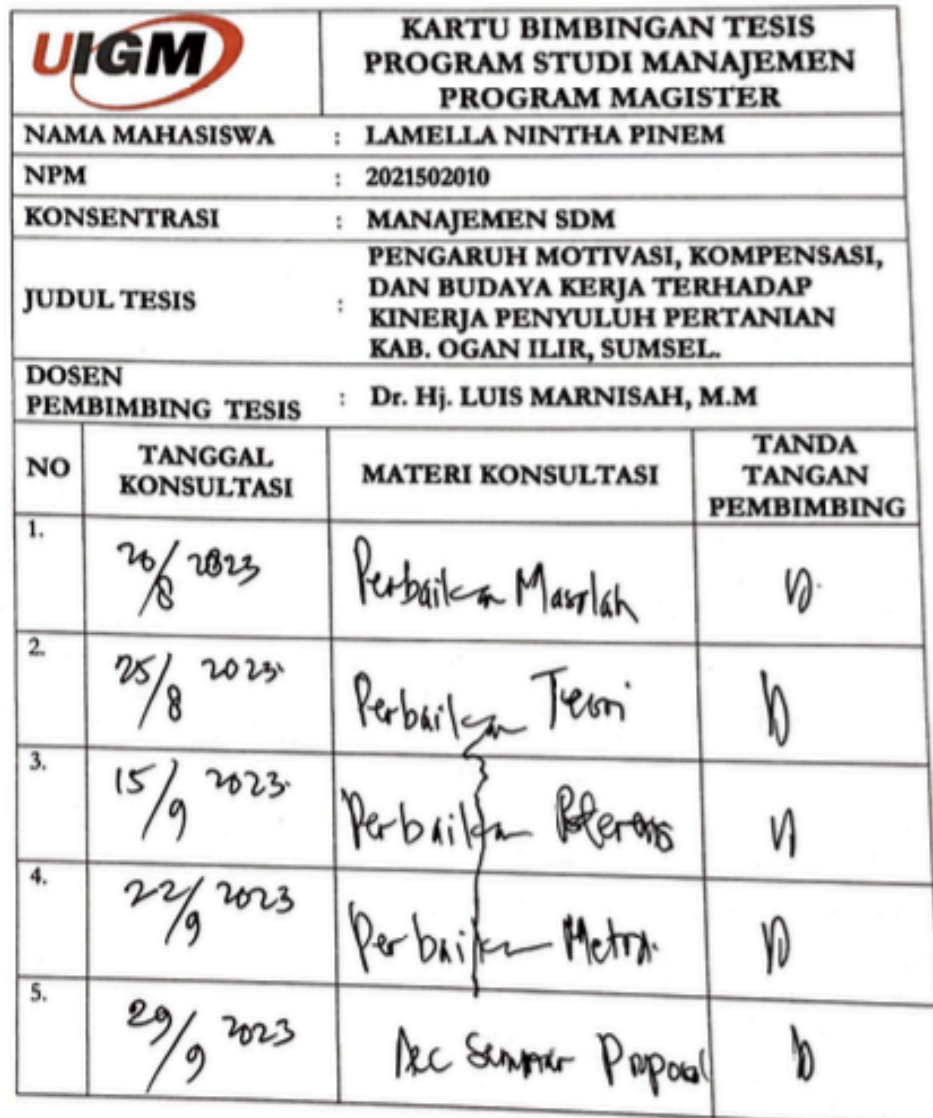 UIGM
KARTU BIMBINGAN TESIS
PROGRAM STUDI MANAJEMEN
PROGRAM MAGISTER
NAMA MAHASISWA : LAMELLA NINTHA PINEM
NPM : 2021502010
KONSENTRASI : MANAJEMEN SDM
JUDUL TESIS : PENGARUH MOTIVASI, KOMPENSASI,
DAN BUDAYA KERJA TERHADAP
KINERJA PENYULUH PERTANIAN
KAB. OGAN ILIR, SUMSEL.
DOSEN
PEMBIMBING TESIS : Dr. Hj. LUIS MARNISAH, M.M
NO TANGGAL KONSULTASI MATERI KONSULTASI TANDA TANGAN PEMBIMBING
1. 20/8 2023 Perbaikan Masalah
2. 25/8 2023 Perbaikan Teori
3. 15/9 2023 Perbaikan
4. 22/9 2023 Perbaikan
5. 29/9 2023 Acc Seminar Proposal